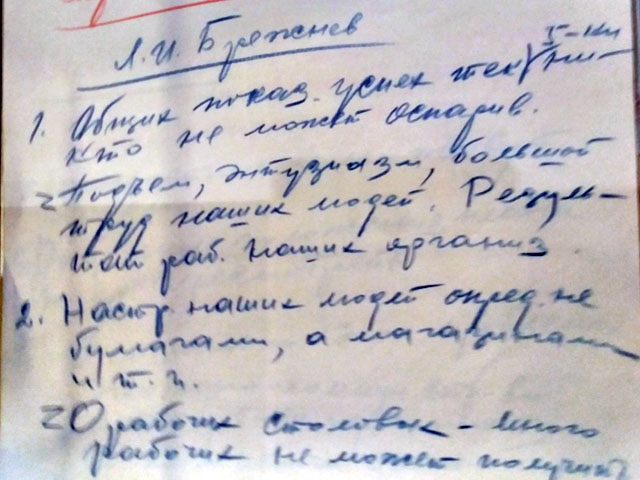 Л.И. Брежнев
1. Общих показ. успех тех ни-
кто не может оспарив.
Z Подъем, энтузиазм, большой
труд наших людей. Резуль-
тат раб. наших организ.
2. Настр. наших людей опред. не
бумагами, а магазинами
и т. п.
Z О рабочих столовых – много
рабочих не может получить